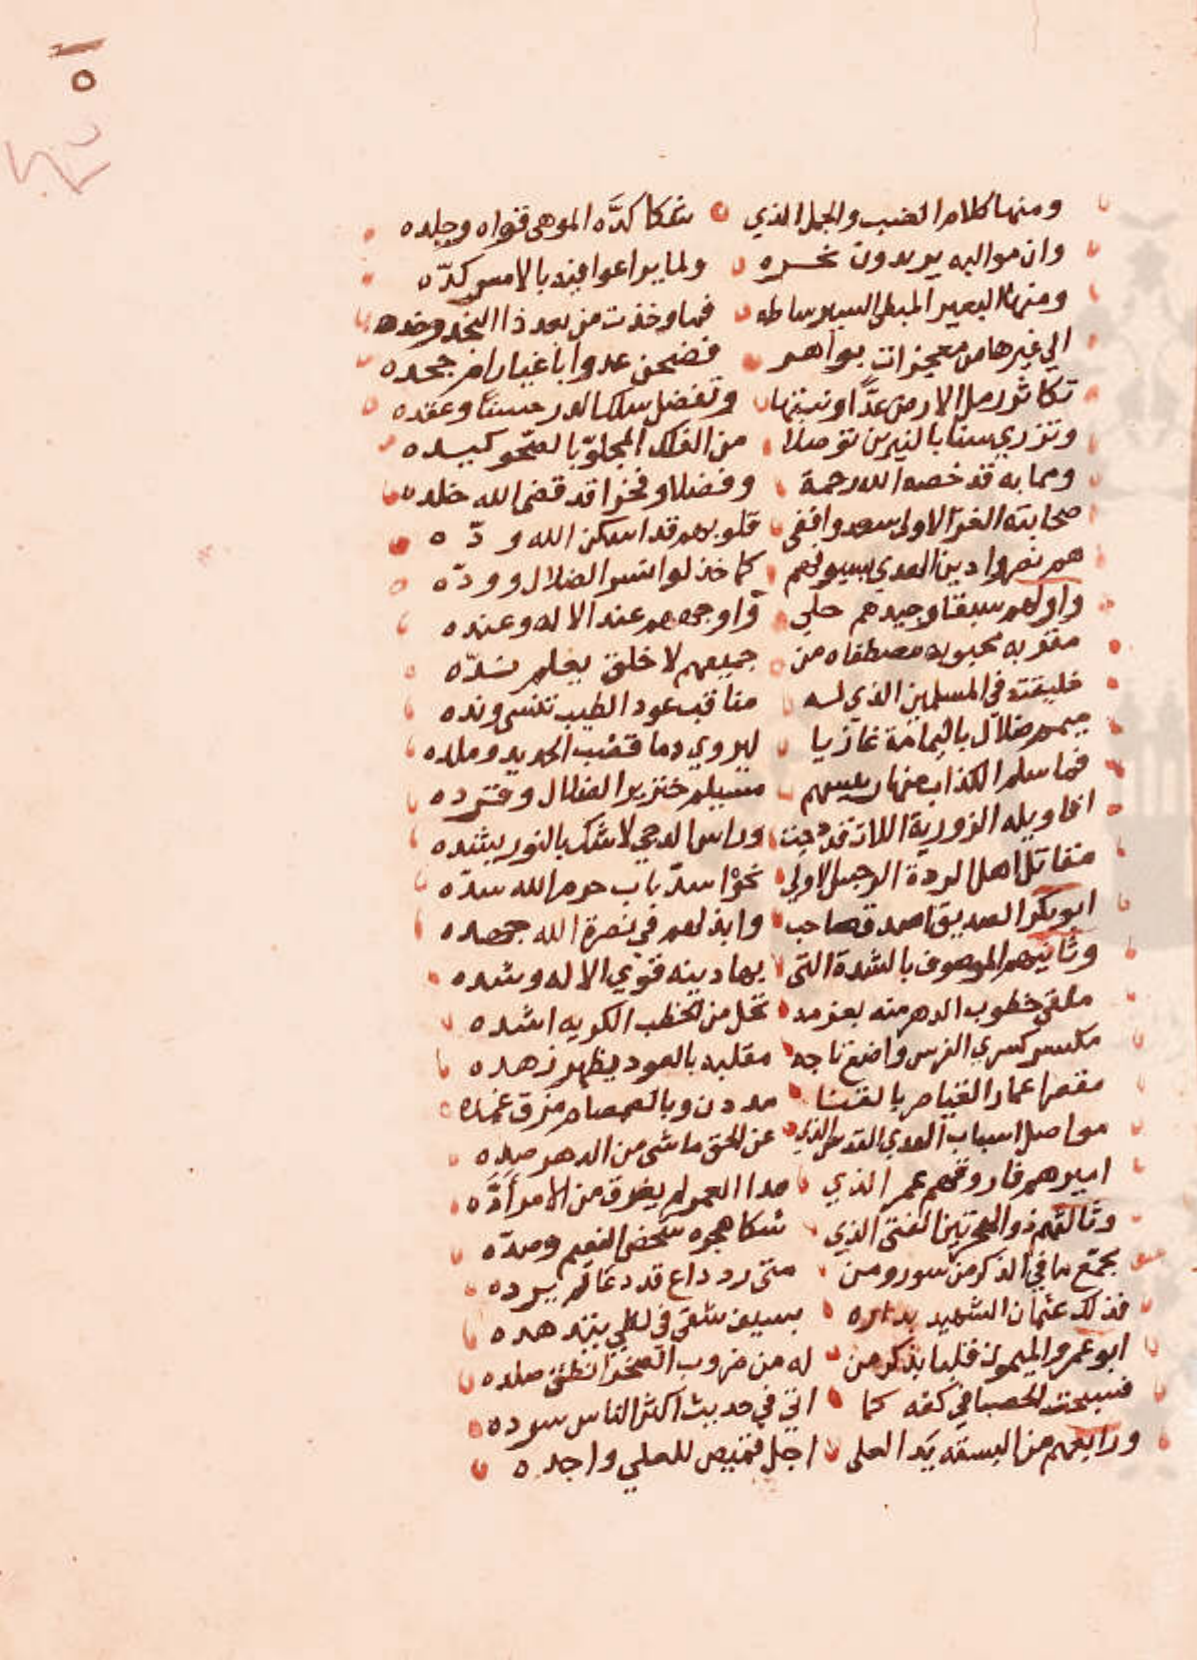 ومنها كلام الضب والجمل الذي شكا كدَّه الموهى قواه وجلده
وان مواليه يريدون نحره ولما يراعوا فيه بالامس كدّه
ومنها البعير المبطي السير ساطه فما وخذت من بعد ذا النجد وخده
الى غيرها من معجزات بواهر فضحن عدوا باغيا رام جحده
تكاثر رمل الارض عدًّا ونبتها وتفضل سلك الدر حسنًا وعقده
وتزري سنا بالنيرين توصلا من الفلك المجلوّ بالصحو كبده
ومما به قد خصه الله رحمة وفضلا وفخرا قد قضى الله خلده
صحابته الغر الاولى سعدوا ففي قلوبهم قد اسكن الله ودّه
هم نصروا دين الهدى بسيوفهم كما خذلوا نسر الضلال وودّه
واولهم سبقا وجيدهم حلي واوجههم عند الاله وعنده
مقربه محبوبه مصطفاه من جميعهم لا خلق يعلم ندّه
خليفته في المسلمين الذي له مناقب عود الطيب تنسى ونده
ميمم ضلال باليمامة غازيا ليروي دما قضب الحديد وملده
فما سلم الكذاب منها مسيلم خنزير الضلال وقرده
اقاويله الزورية اللات قد دجت وراس الدجى لا شك بالنور يشده
مقاتل اهل الردة الرجل الاولى نحوا سدّ باب حرم الله سدّه
ابو بكر الصديق اصدق صاحب وابذلهم في نصرة الله جهده
وثانيهم الموصوف بالشدة التي بها دينه قوي الاله وشده
ملقى خطوب الدهر منه بعزمه تحل من الخطب الكريه اشده
مكسر كسرى الفرس واضع تاجه مقلبه بالعود يظهر زهده
مقصر اعمار القياصر بالقنا مددن وبالصمصام مزق غمده
مواصل اسباب الهدى القدس الذي عن الحق ما شي من الدهر صده
اميرهم فاروقهم عمر الذي مدا العمر لم يفرق من الامر ادَّه
وثالثهم ذو الهجرتين الفتى الذي شكا هجره شخص النعيم وصدّه
بجمع ما في الذكر من سور ومن متى رد داع قد دعا لم يرده
فذلك عثمان الشهيد بداره بسيف شقي في لظى
ابو عمرو الميمون قلبا بذكر من له من ضروب الصخر صلده
فسبحت الحصبا في كفه كما اتى في حديث اكثر الناس سرده
ورابعهم من البسته يد العلى اجل قميص للعلي واجده